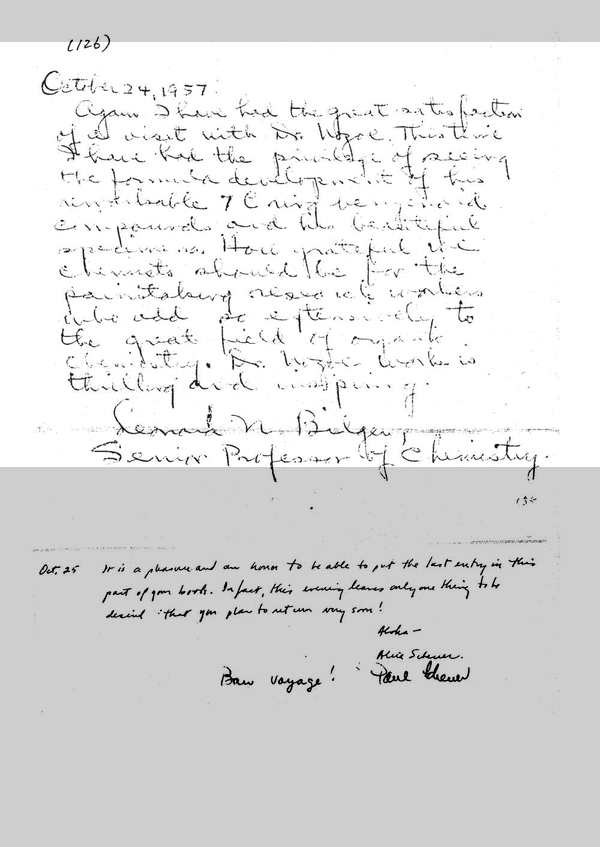 (126)
October 24, 1957.
Again I have had the great satisfaction
of a visit with Dr. Nozoe. This time
I have had the privilege of seeing
the formula development of his
remarkable 7 C ring benzenoid
compounds and his beautiful
specimens. How grateful we
chemists should be for the
painstaking research workers
who add so extensively to
the great field of organic
chemistry. Dr. Nozoe's work is
thrilling and inspiring.
Leonora N. Bilger,
Senior Professor of Chemistry.
Oct. 25 It is a pleasure and an honor to be able to put the last entry in this
part of your book. In fact, this evening leaves only one thing to be
desired : that you plan to return very soon!
Aloha —
Alice Scheuer.
Bon voyage! Paul Scheuer